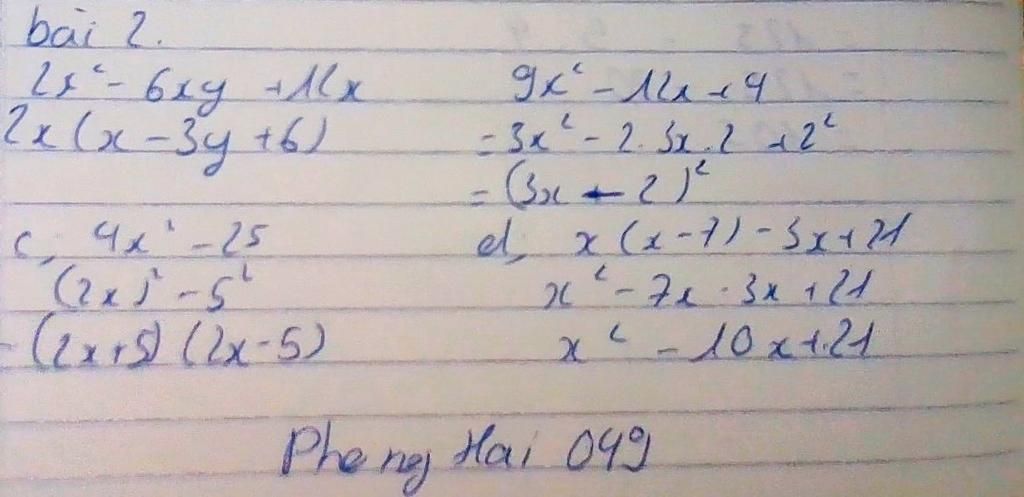 bài 2.
2x² - 6xy + 12x
2x(x - 3y + 6)
9x² - 12x + 4
= 3x² - 2.3x.2 + 2²
= (3x - 2)²
c, 4x² - 25
(2x)² - 5²
- (2x+5) (2x-5)
d, x(x-7) - 3x + 21
x² - 7x - 3x + 21
x² - 10x + 21
Phong Hai 049